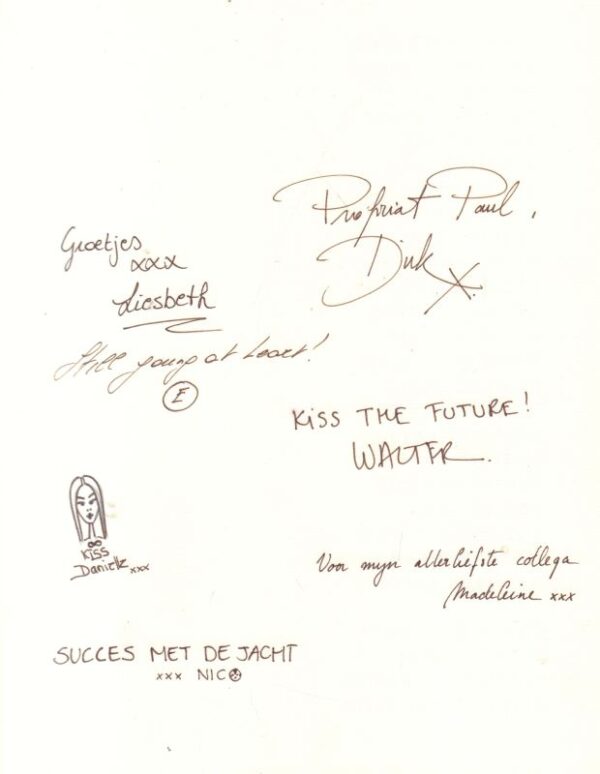 Proficiat Paul,
Dirk X.
Groetjes
xxx
Liesbeth
Still young at heart!
E
KISS THE FUTURE!
WALTER.
KISS
Danielle xxx
Voor mijn allerliefste collega
Madeleine xxx
SUCCES MET DE JACHT
xxx NICO